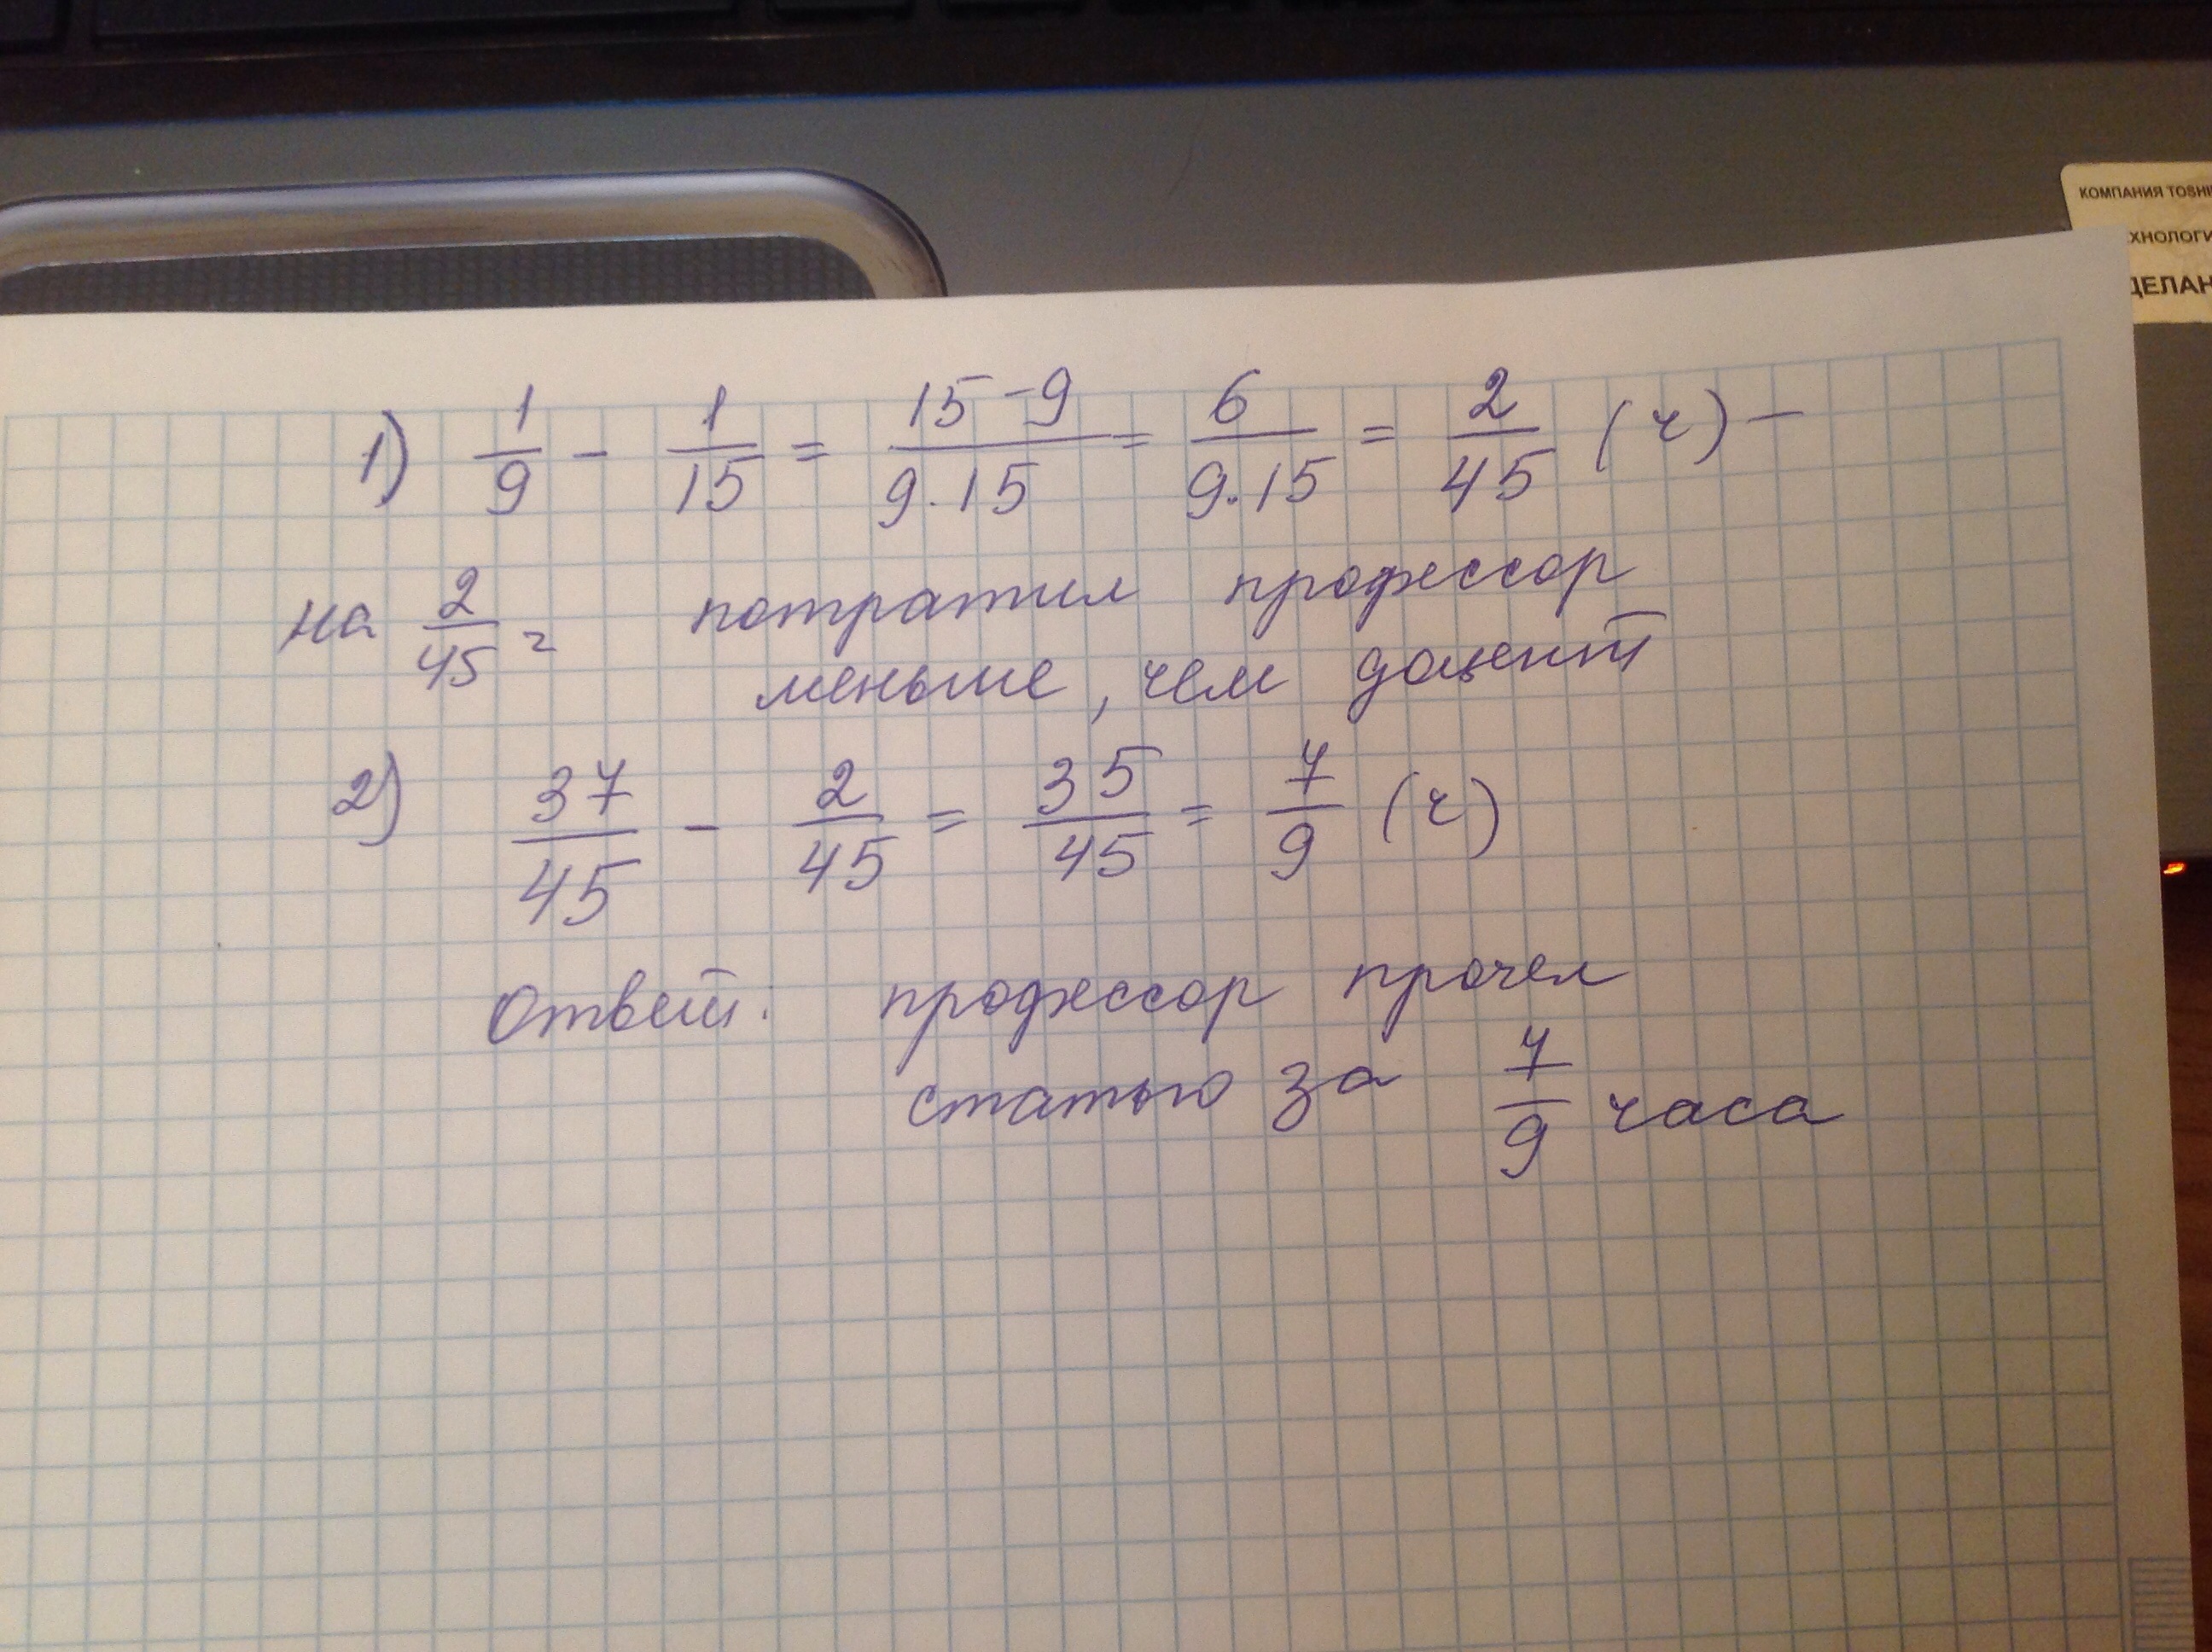 КОМПАНИЯ TOSHI
ХНОЛОГИ
ДЕЛАН
1) 1/9 - 1/15 = 15-9/9.15 = 6/9.15 = 2/45 (ч) -
на 2/45 ч потратил профессор
меньше, чем доцент
2) 37/45 - 2/45 = 35/45 = 7/9 (ч)
Ответ: профессор прочел
статью за 7/9 часа